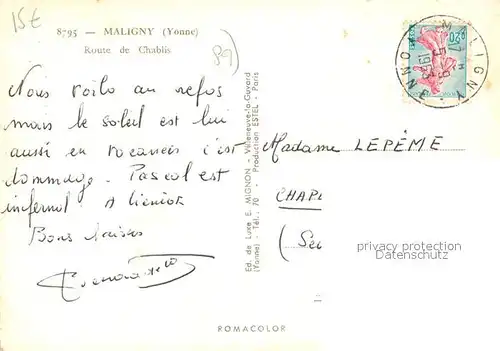 15€
8795 — MALIGNY (Yonne)
Route de Chablis
89)
Nous voilo au repos
mais le soleil est lui
aussi en vacances c'est
dommage. Pascal est
infernal. A bientot
Bons baisers
Ed. de Luxe E. MIGNON - Villeneuve-la-Guyard
(Yonne) - Tél. 70 - Production ESTEL - Paris
MALIGNY
YONNE
0,20
Madame LEPÈME
CHAP
(Sei
privacy protection
Datenschutz
ROMACOLOR